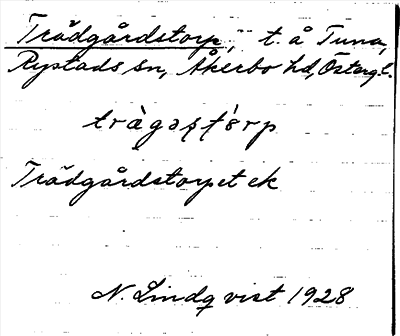 Trädgårdstorp, t. å Tuna,
Rystads sn, Åkerbo hd, Österg.l.
tràgəstɔ́rp
Trädgårdstorpet ek
N. Lindqvist 1928